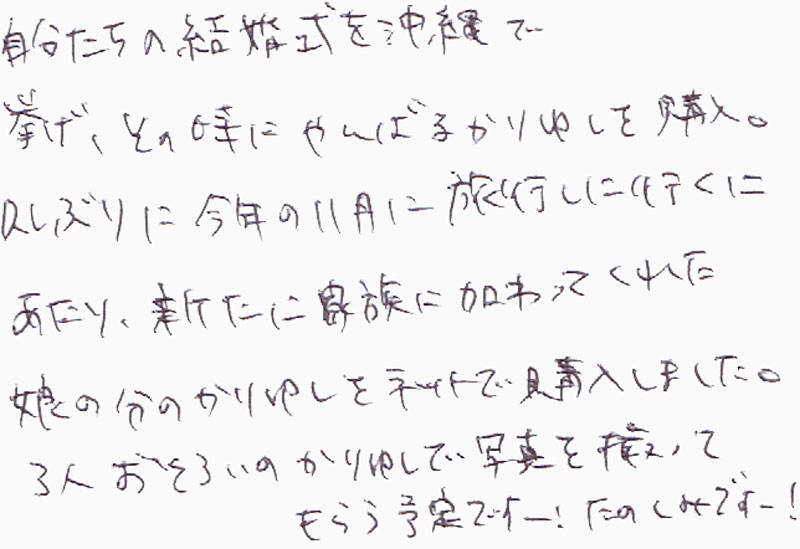 自分たちの結婚式を沖縄で
挙げ、その時にやんばるかりゆしを購入。
久しぶりに今年の11月に旅行しに行くに
あたり、新たに家族に加わってくれた
娘の分のかりゆしをネットで購入しました。
3人おそろいのかりゆしで写真を撮って
もらう予定ですー!たのしみですー!